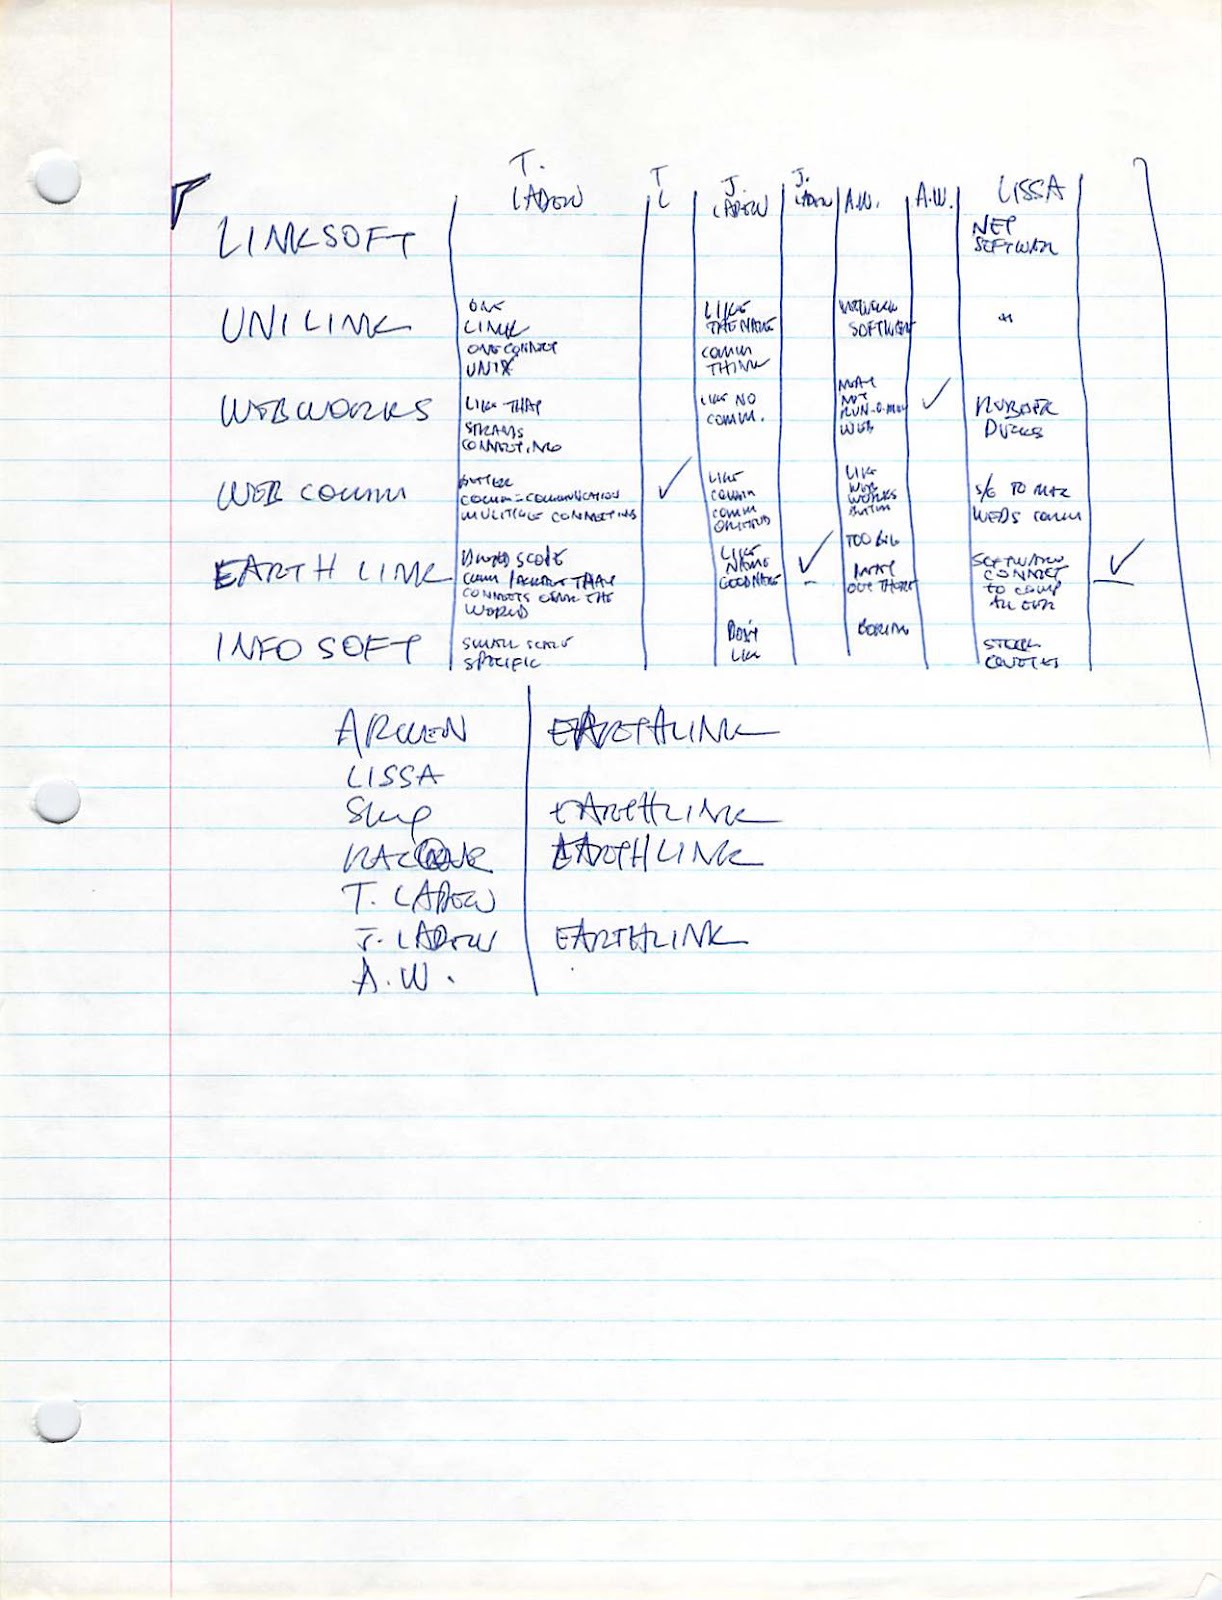 T. LADEW T L J. LADEW J. LADEW A.W. A.W. LISSA
LINKSOFT NET SOFTWARE
UNILINK ONE LINK ONE CONNECT UNIX LIKE THE NAME COMM THINK NETWORK SOFTWARE "
WEBWORKS LIKE THAT STRANDS CONNECTING LIKE NO COMM. MAY NOT RUN-O-MILL WEB ✓ RUBBER DUCKS
WEB COMM BETTER COMM=COMMUNICATION MULTIPLE CONNECTING ✓ LIKE COMM COMM LIKE WEB WORKS BETTER TO MAX WEDS COMM
EARTH LINK BROAD SCOPE COMM THAT CONNECTS OVER THE WORLD LIKE NAME GOOD NAME ✓ TOO BIG WAY OUT THERE SOFTWARE CONNECT TO COMP ALL OVER ✓
INFO SOFT SMALL SCALE SPECIFIC DON'T LIKE BORING
ARWEN EARTHLINK
LISSA
Skip EARTHLINK
EARTHLINK
T. LADEW
J. LADEW EARTHLINK
A.W.